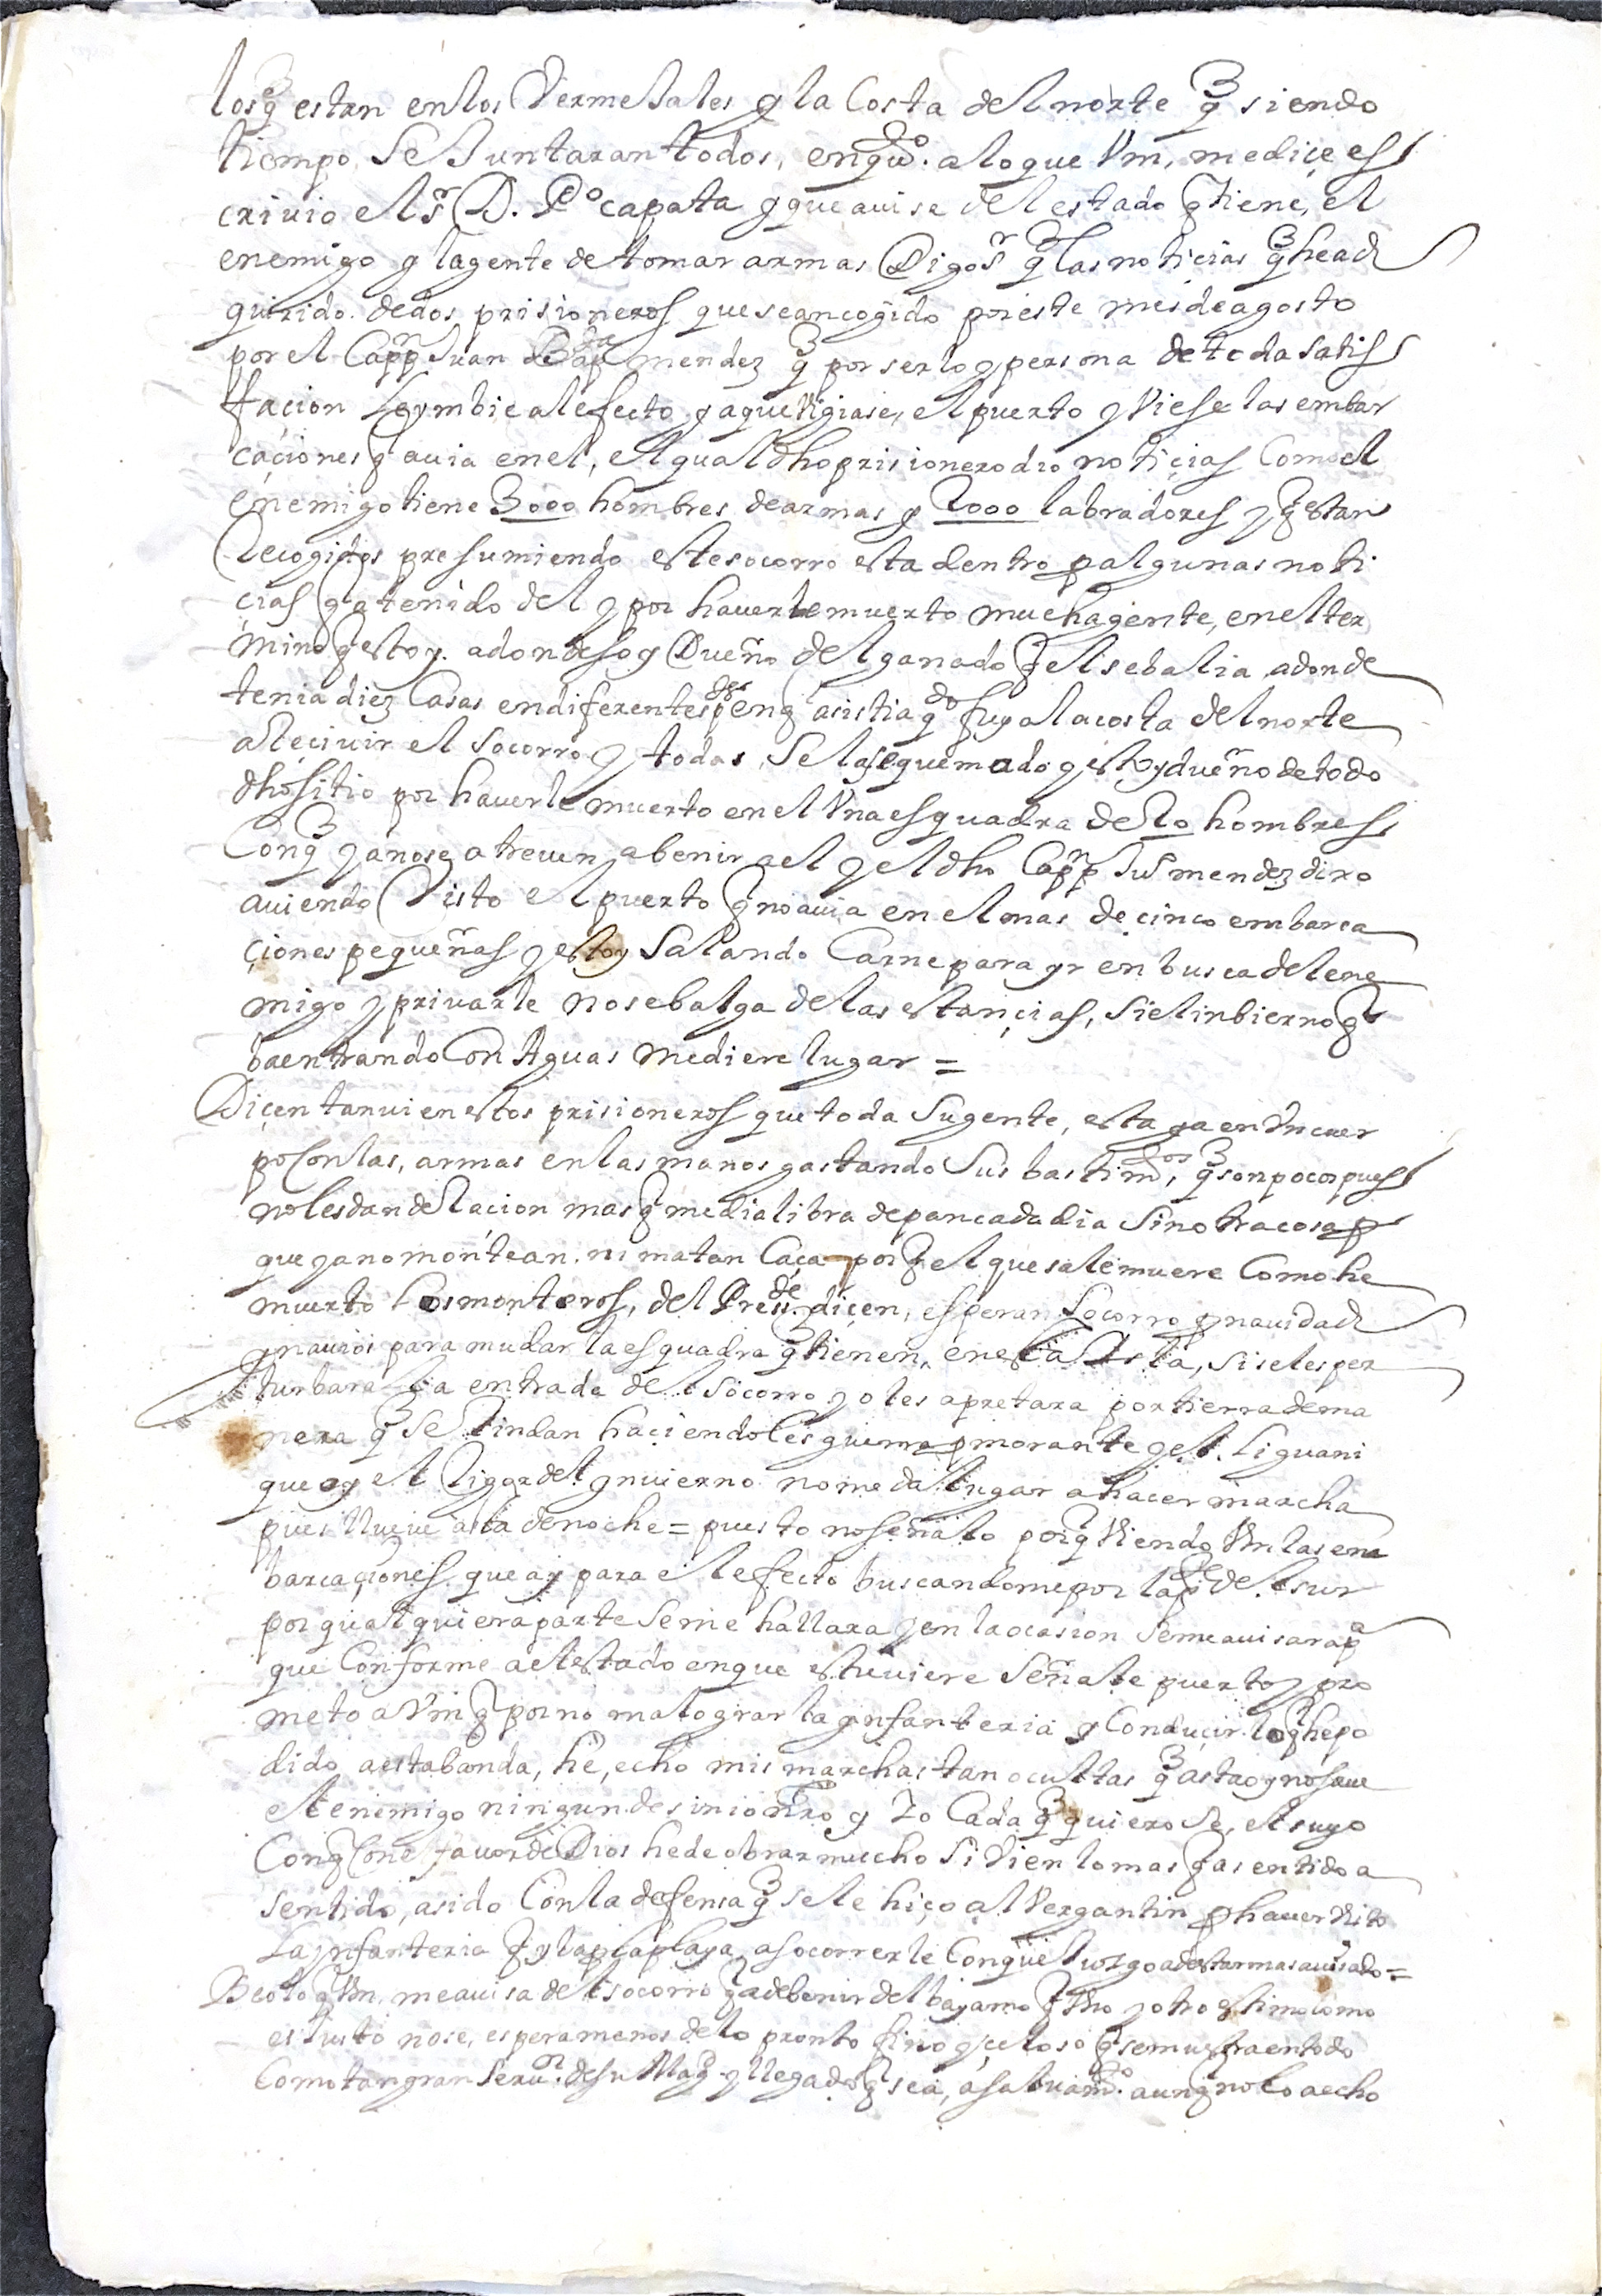 los q estan en los Vermejales y la Costa del norte q siendo
tiempo Se Juntaran todos, en qto. a lo que Vm, me diçe es
criuio el sr D. Po çapata y que auise del estado q tiene, el
enemigo y la gente de tomar armas Digo sr q las noticias q he ad
quirido de dos prisioneros que se an cogido por este mes de agosto
por el Cappn Juan de Bapta mendez q por serlo y persona de toda satis
façion Le ymbie al efecto y a que Vigiase, el puerto y Viese las embar
caçiones q auia en el, el qual dho prisionero dio notiçias Como el
enemigo tiene 3000 hombres de armas y 2000 labradores y q estan
Recogidos presumiendo este socorro esta dentro p algunas noti
çias q a tenido del y por hauerle muerto mucha gente, en el ter
mino q estoy. adonde soy Dueño del ganado q el se balia adonde
tenia diez Casas en diferentes pes en q asistia qdo fuy a la costa del norte
a Reçiuir el socorro y todas, Se las e quemado y estoy dueño de todo
dho sitio por hauerle muerto en el Vna esquadra de 20 hombres
Con q ya no se atreuen a benir a el y el dho Cappn Ju mendez dixo
auiendo Visto el puerto q no auia en el mas de çinco embarca
çiones pequeñas y estoy Salando Carne para yr en busca del ene
migo y priuarle no se balga de las estançias, si el inbierno q
ba entrando Con Aguas me diere lugar =
Diçen tanuien estos prisioneros que toda Su gente, esta ya en Vn cuer
po Con las, armas en las manos gastando Sus bastimos, q son pocos pues
no les dan de Raçion mas q media libra de pan cada dia Sin otra cosa p
que ya no montean. ni matan Caça por q el que sale muere Como he
muerto los monteros, del Preside. diçen, esperan Socorro y nauidad
y nauios para mudar la esquadra q tienen, en esta Isla, si se les per
turbara la entrada del socorro yo les apretara por tierra de ma
nera q Se Rindan haçiendoles guerra p morante y el. Liguani
que oy el Rigor del ynuierno no me da lugar a haçer marcha
pues llueue asta de noche = puesto no señalo por q Viendo Vm las em
barcaçiones que ay para el efecto buscandome por la pte del sur
por qualquiera parte Se me hallara y en la ocasion se me auisara pa
que Conforme a el estado en que estuuiere Señale puerto y pro
meto a Vm q por no malograr la ynfanteria y Conduçir lo q he po
dido a esta banda, he, echo mis marchas tan ocultas q asta oy no saue
el enemigo ningun desinio nro y Yo Cada q quiero se, el suyo
Con q Con el fauor de Dios he de obrar mucho Si Vien lo mas q a sentido a
sentido, a sido Con la defensa q se le hiço al Vergantin p hauer Visto
La ynfanteria q yba p la playa, a socorrerle Con que Juzgo a de estar mas auisado =
Beo lo q Vm, me auisa del socorro q a de benir del bayamo q Vno y otro estimo como
es Justo no se, espera menos de lo pronto fino y çeloso q se muestra en todo
Como tan gran Seruor. de su Magd y llegado q sea, a saluamto. aunq no lo a echo